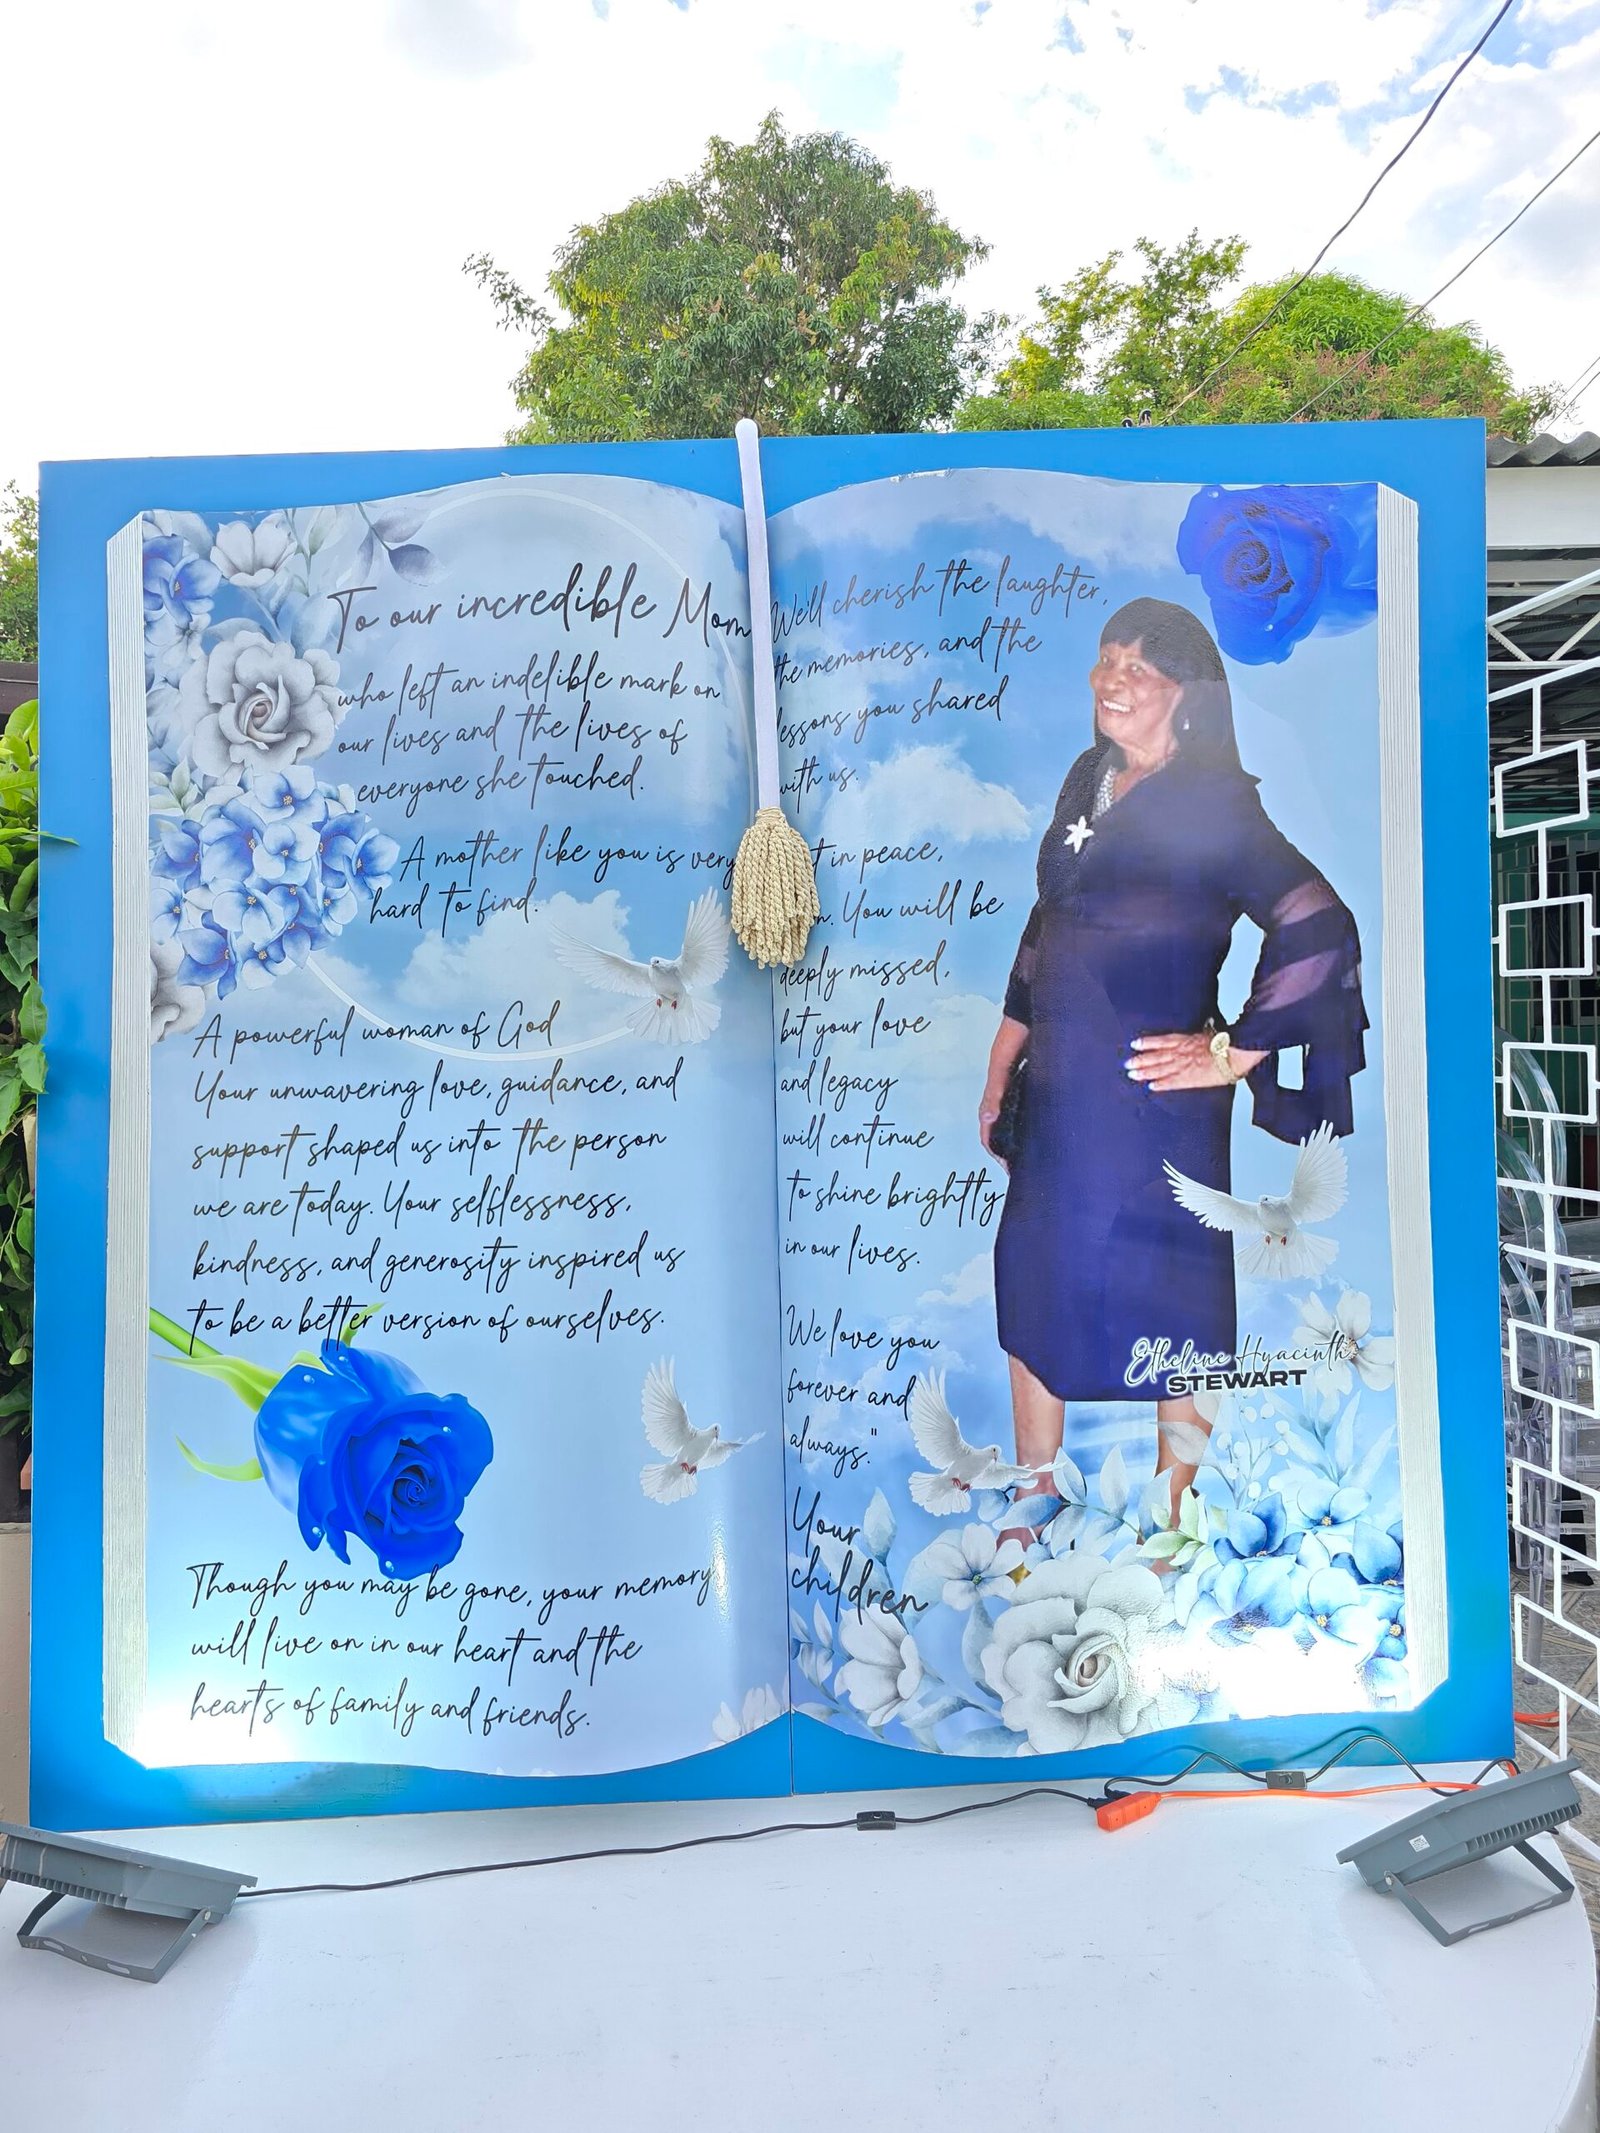 To our incredible Mom
who left an indelible mark on
our lives and the lives of
everyone she touched.
A mother like you is very
hard to find.
A powerful woman of God
Your unwavering love, guidance, and
support shaped us into the person
we are today. Your selflessness,
kindness, and generosity inspired us
to be a better version of ourselves.
Though you may be gone, your memory
will live on in our heart and the
hearts of family and friends.
We'll cherish the laughter,
the memories, and the
lessons you shared
with us.
in peace,
You will be
deeply missed,
but your love
and legacy
will continue
to shine brightly
in our lives.
We love you
forever and
always."
Your
children
Hyacinth
STEWART